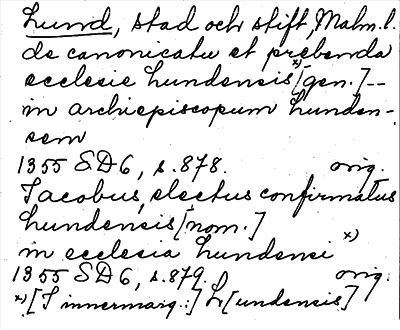 Lund, stad och stift, Malm. l.
de canonicatu et prebenda
ecclesie Lundensis x) [gen.] --
in archiepiscopum Lunden-
sem
1355 SD 6, s. 878. orig.
Jacobus, electus confirmatus
Lundensis [nom.]
in ecclesia Lundensi x)
1355 SD 6, s. 879. orig.
x) [I innermarg.:] L[undensis]